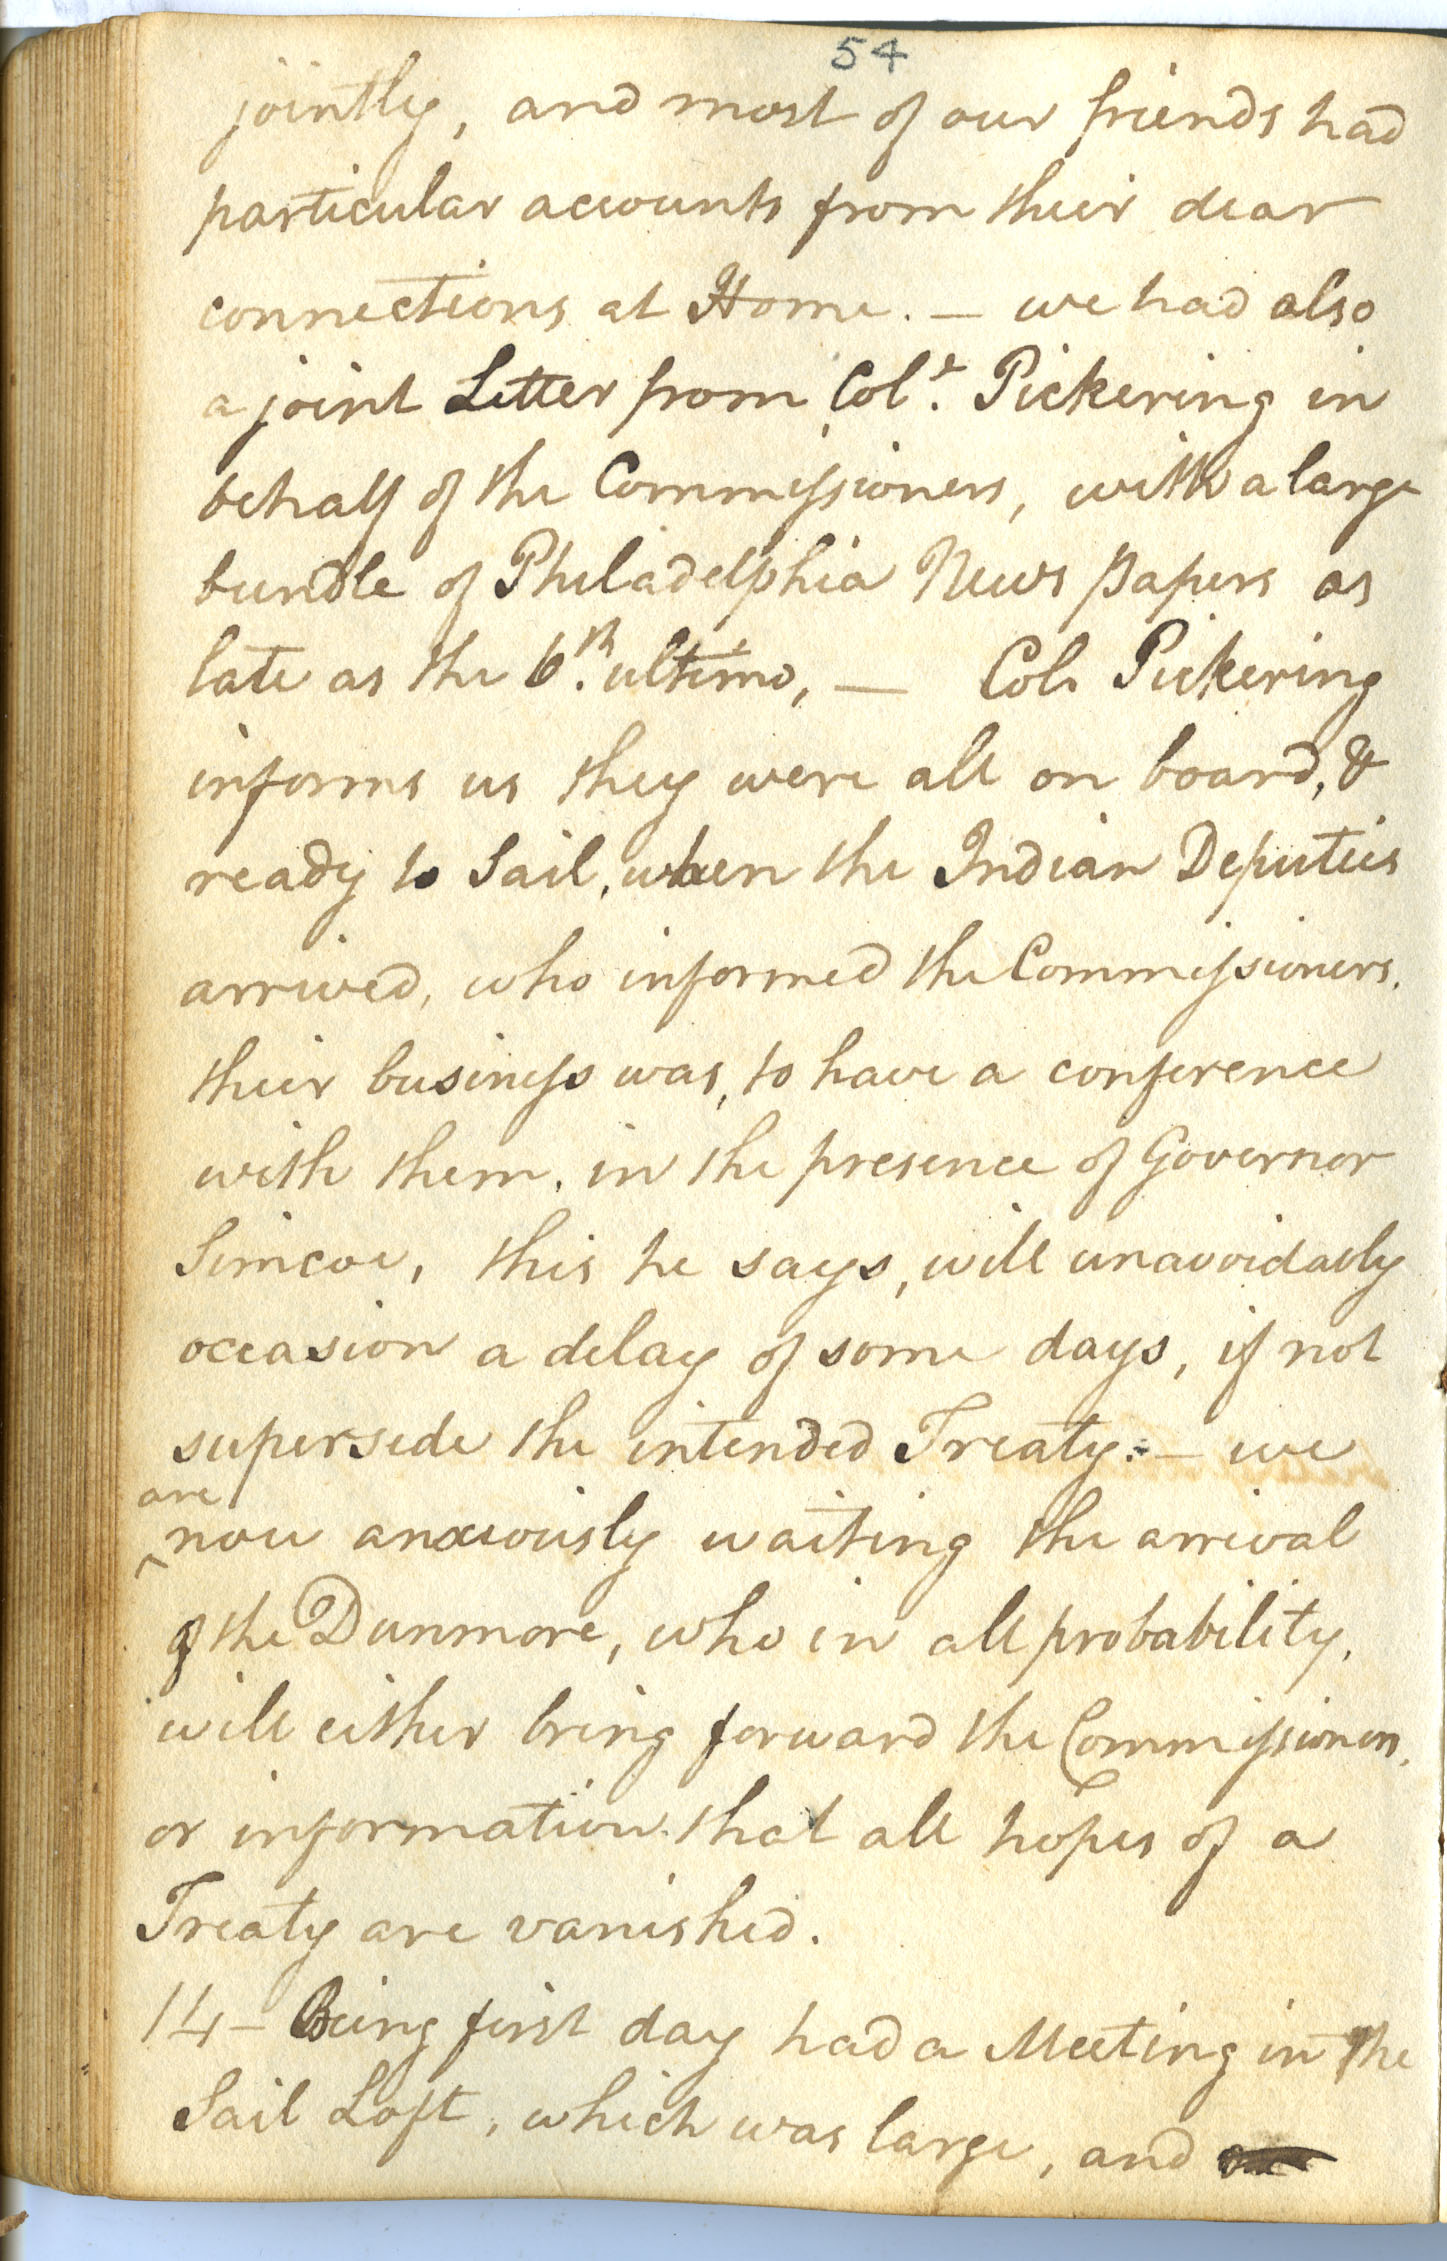 54
jointly, and most of our friends had
particular accounts from their dear
connections at Home. — we had also
a joint Letter from Col.ˡ Pickering in
behalf of the Commissioners, with a large
bundle of Philadelphia News papers as
late as the 6.th ultimo, — Col. Pickering
informs us they were all on board, &
ready to Sail, when the Indian Deputies
arrived, who informed the Commissioners,
their business was, to have a conference
with them, in the presence of Governor
Simcoe, this he says, will unavoidably
occasion a delay of some days, if not
supersede the intended Treaty: — we
are
^now anxiously waiting the arrival
of the Dunmore, who in all probability,
will either bring forward the Commissioners,
or information that all hopes of a
Treaty are vanished.
14 – Being first day had a Meeting in the
Sail Loft, which was large, and